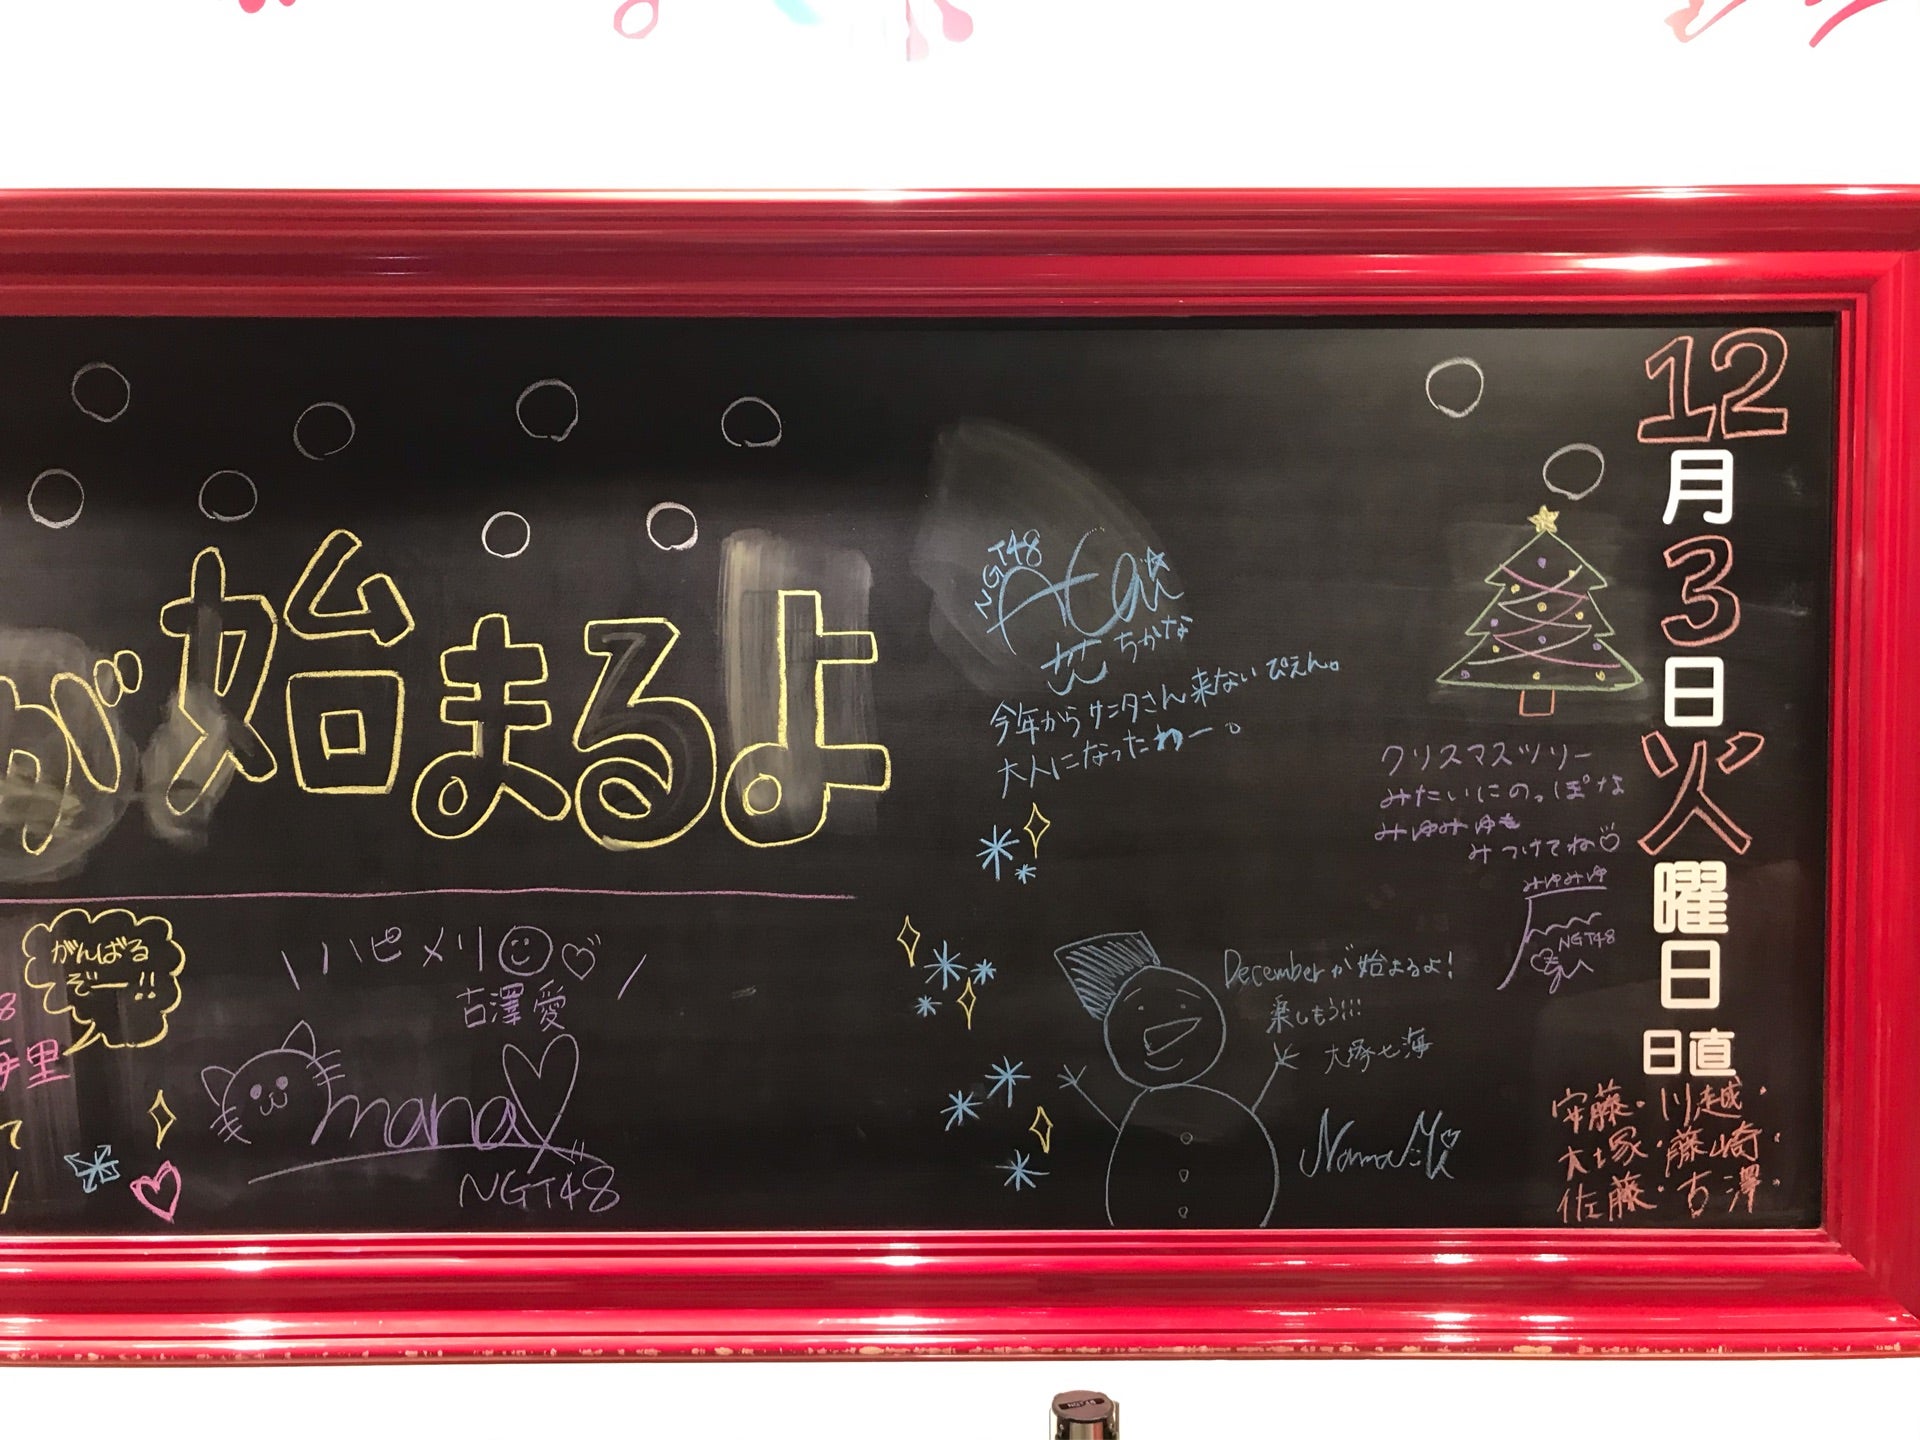 が始まるよ
12
月
3
日
火
曜
日
日直
安藤・川越・
大塚・藤崎・
佐藤・古澤・
NGT48
ちかな
今年からサンタさん来ないぴえん。
大人になったわー。
クリスマスツリー
みたいにのっぽな
みゆみゆを
みつけてね
みゆみゆ
NGT48
Decemberが始まるよ!
楽しもう!!!
大塚七海
がんばる
ぞー!!
\ハピメリ /
古澤愛
mana
NGT48
8
海里
て
NGT48